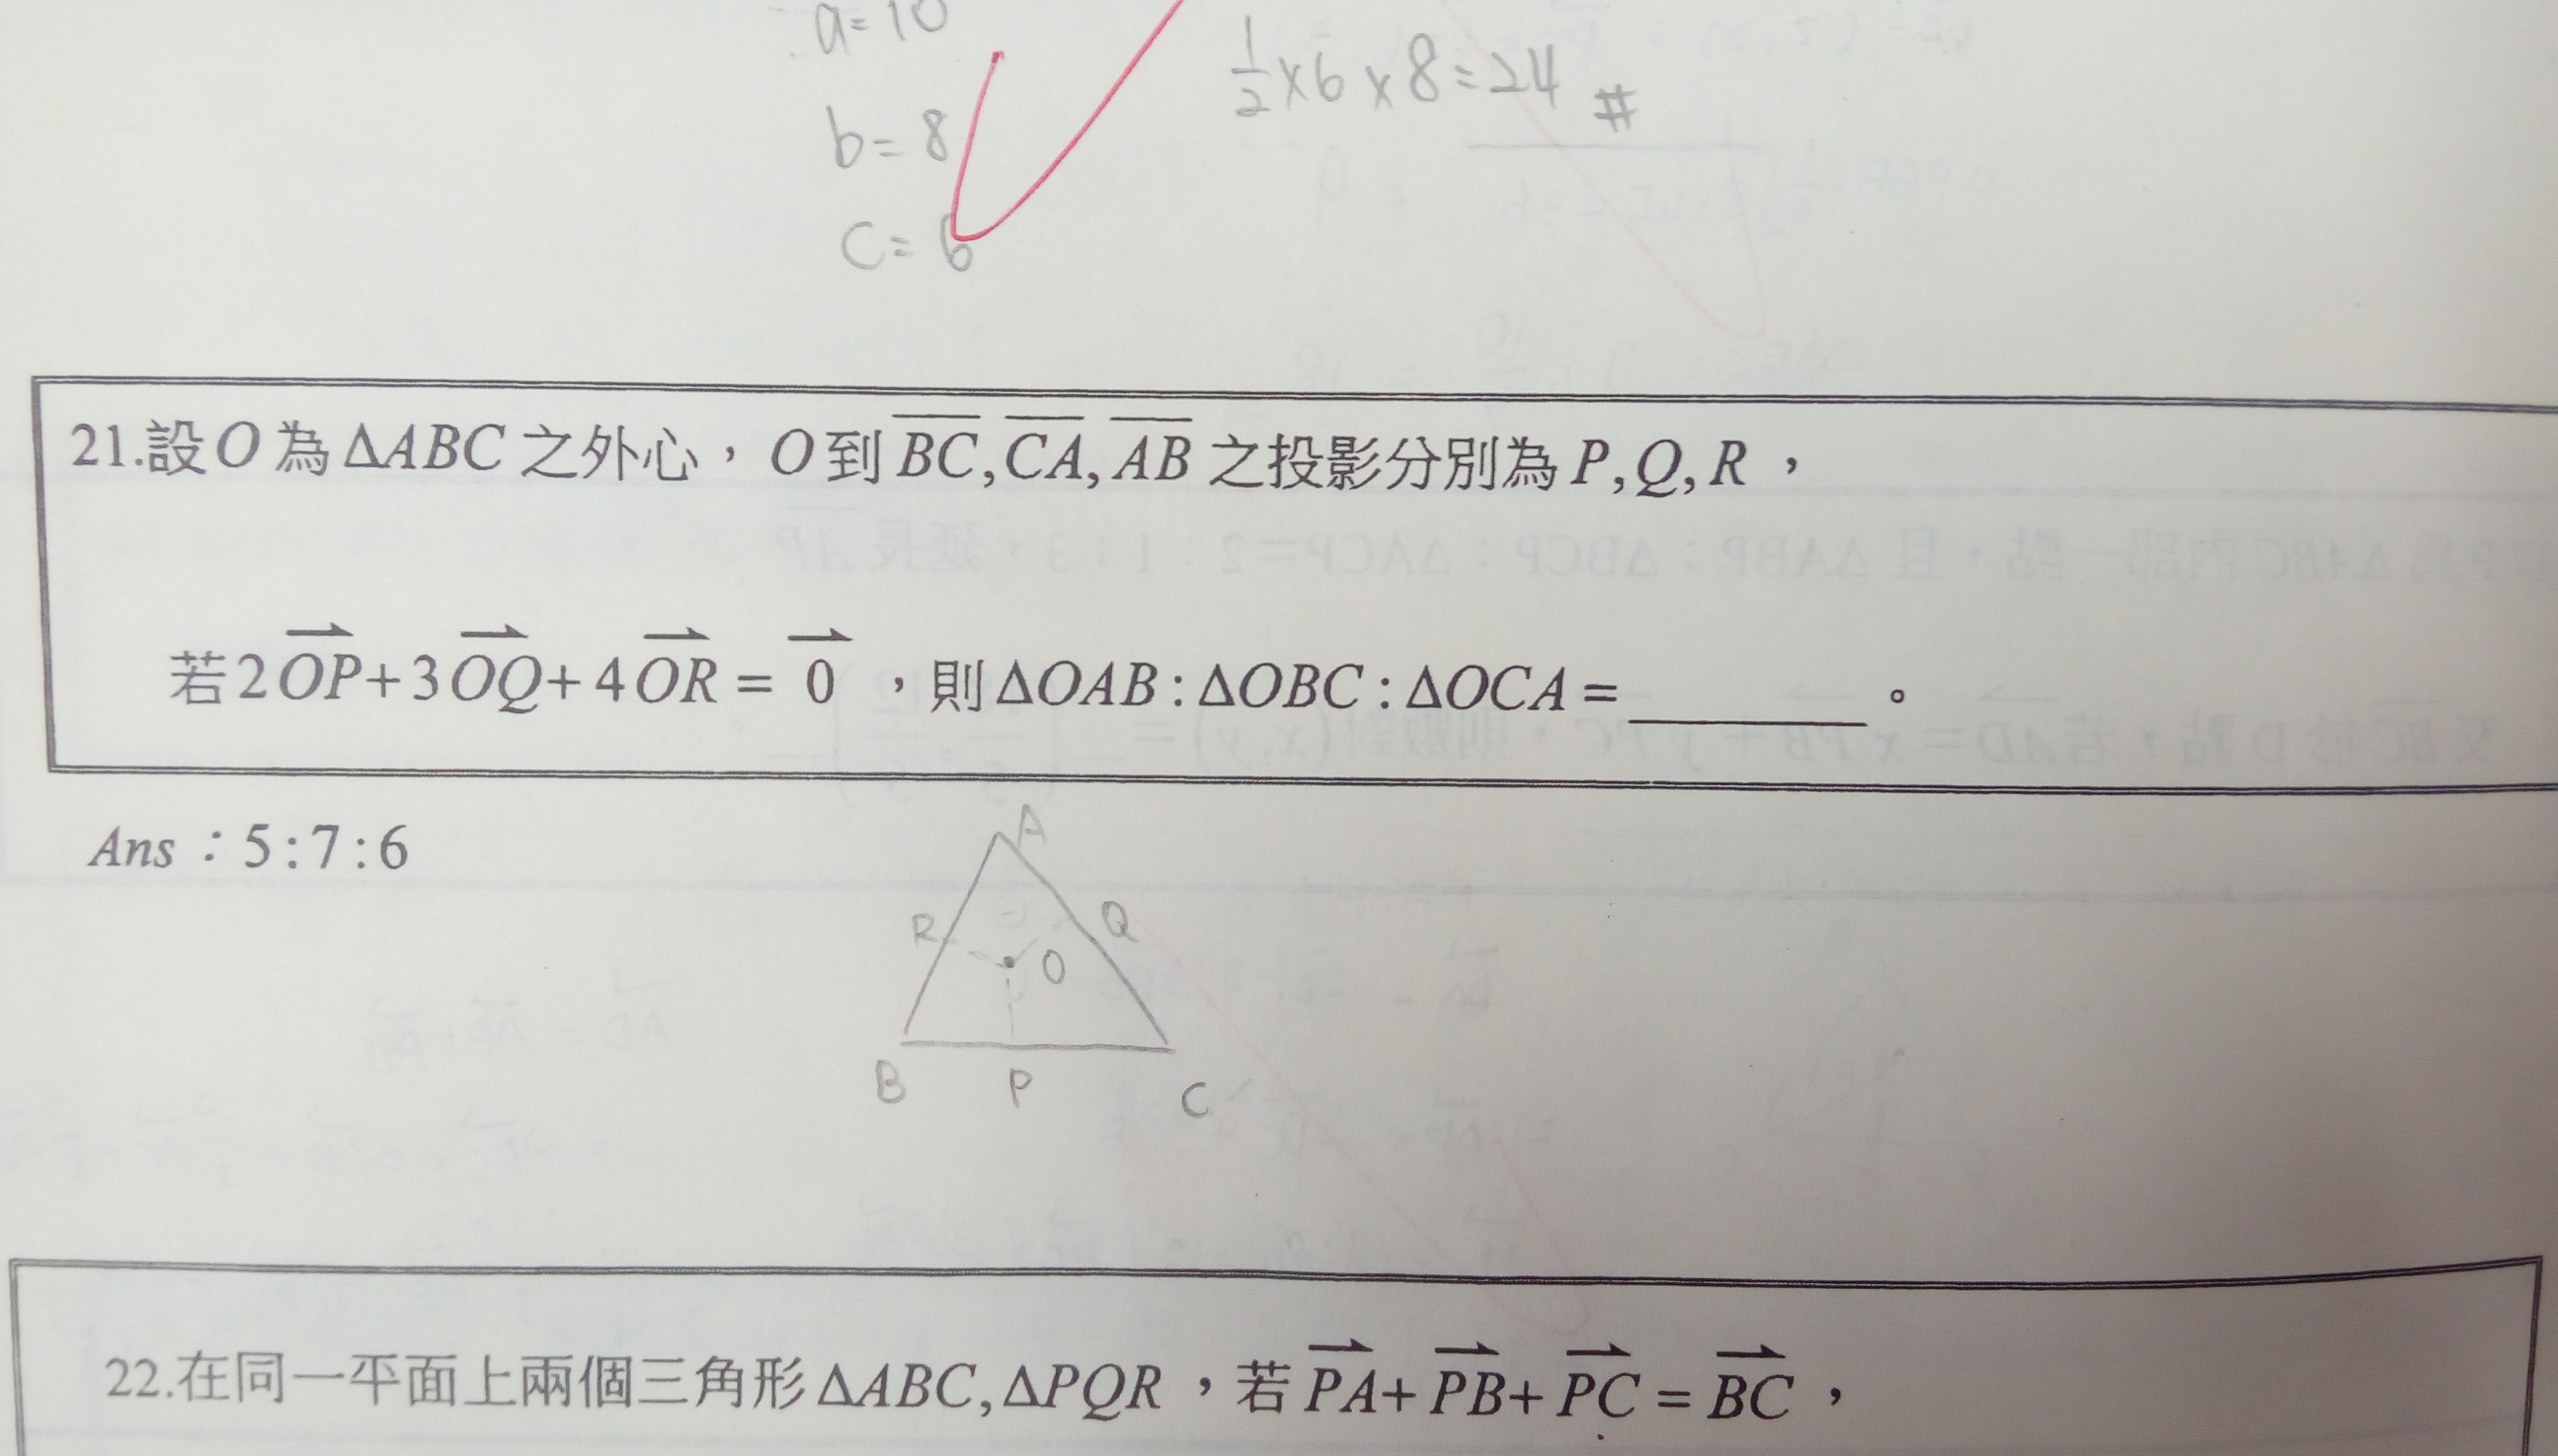 a=10
b=8
c=6
1/2×6×8=24 #
21.設O為ΔABC之外心,O到BC,CA,AB之投影分別為P,Q,R,
若2OP+3OQ+4OR=0,則ΔOAB:ΔOBC:ΔOCA=______。
Ans:5:7:6
A
R
Q
O
B
P
C
22.在同一平面上兩個三角形ΔABC,ΔPQR,若PA+PB+PC=BC,